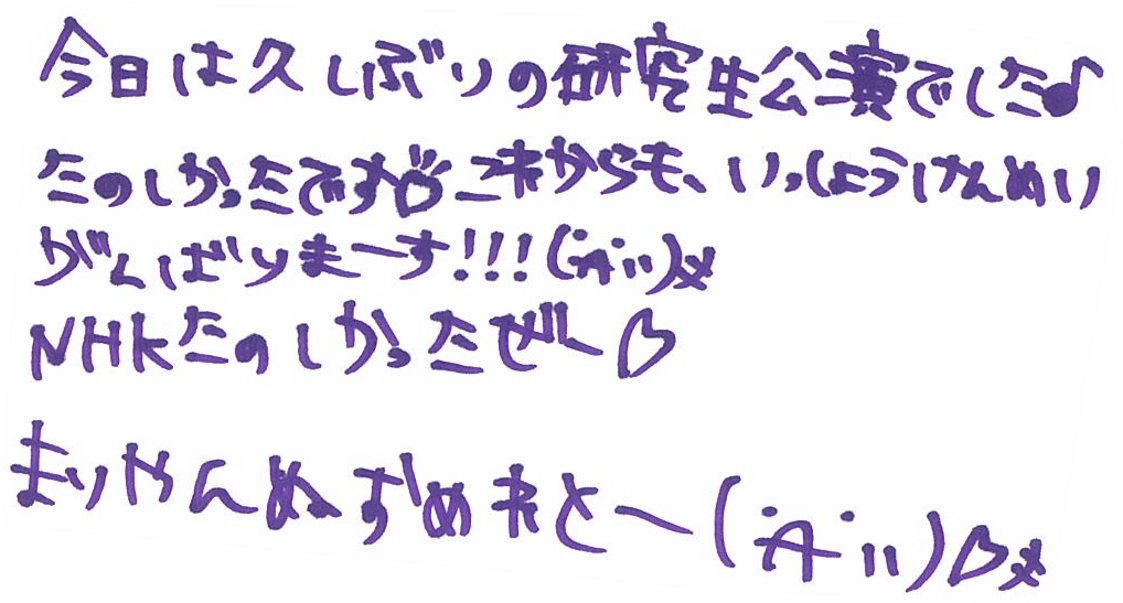 今日は久しぶりの研究生公演でした♪
たのしかったです♡これからも、いっしょうけんめい
がんばりまーす!!!(
NHKたのしかったぜー♡
まりやんぬ